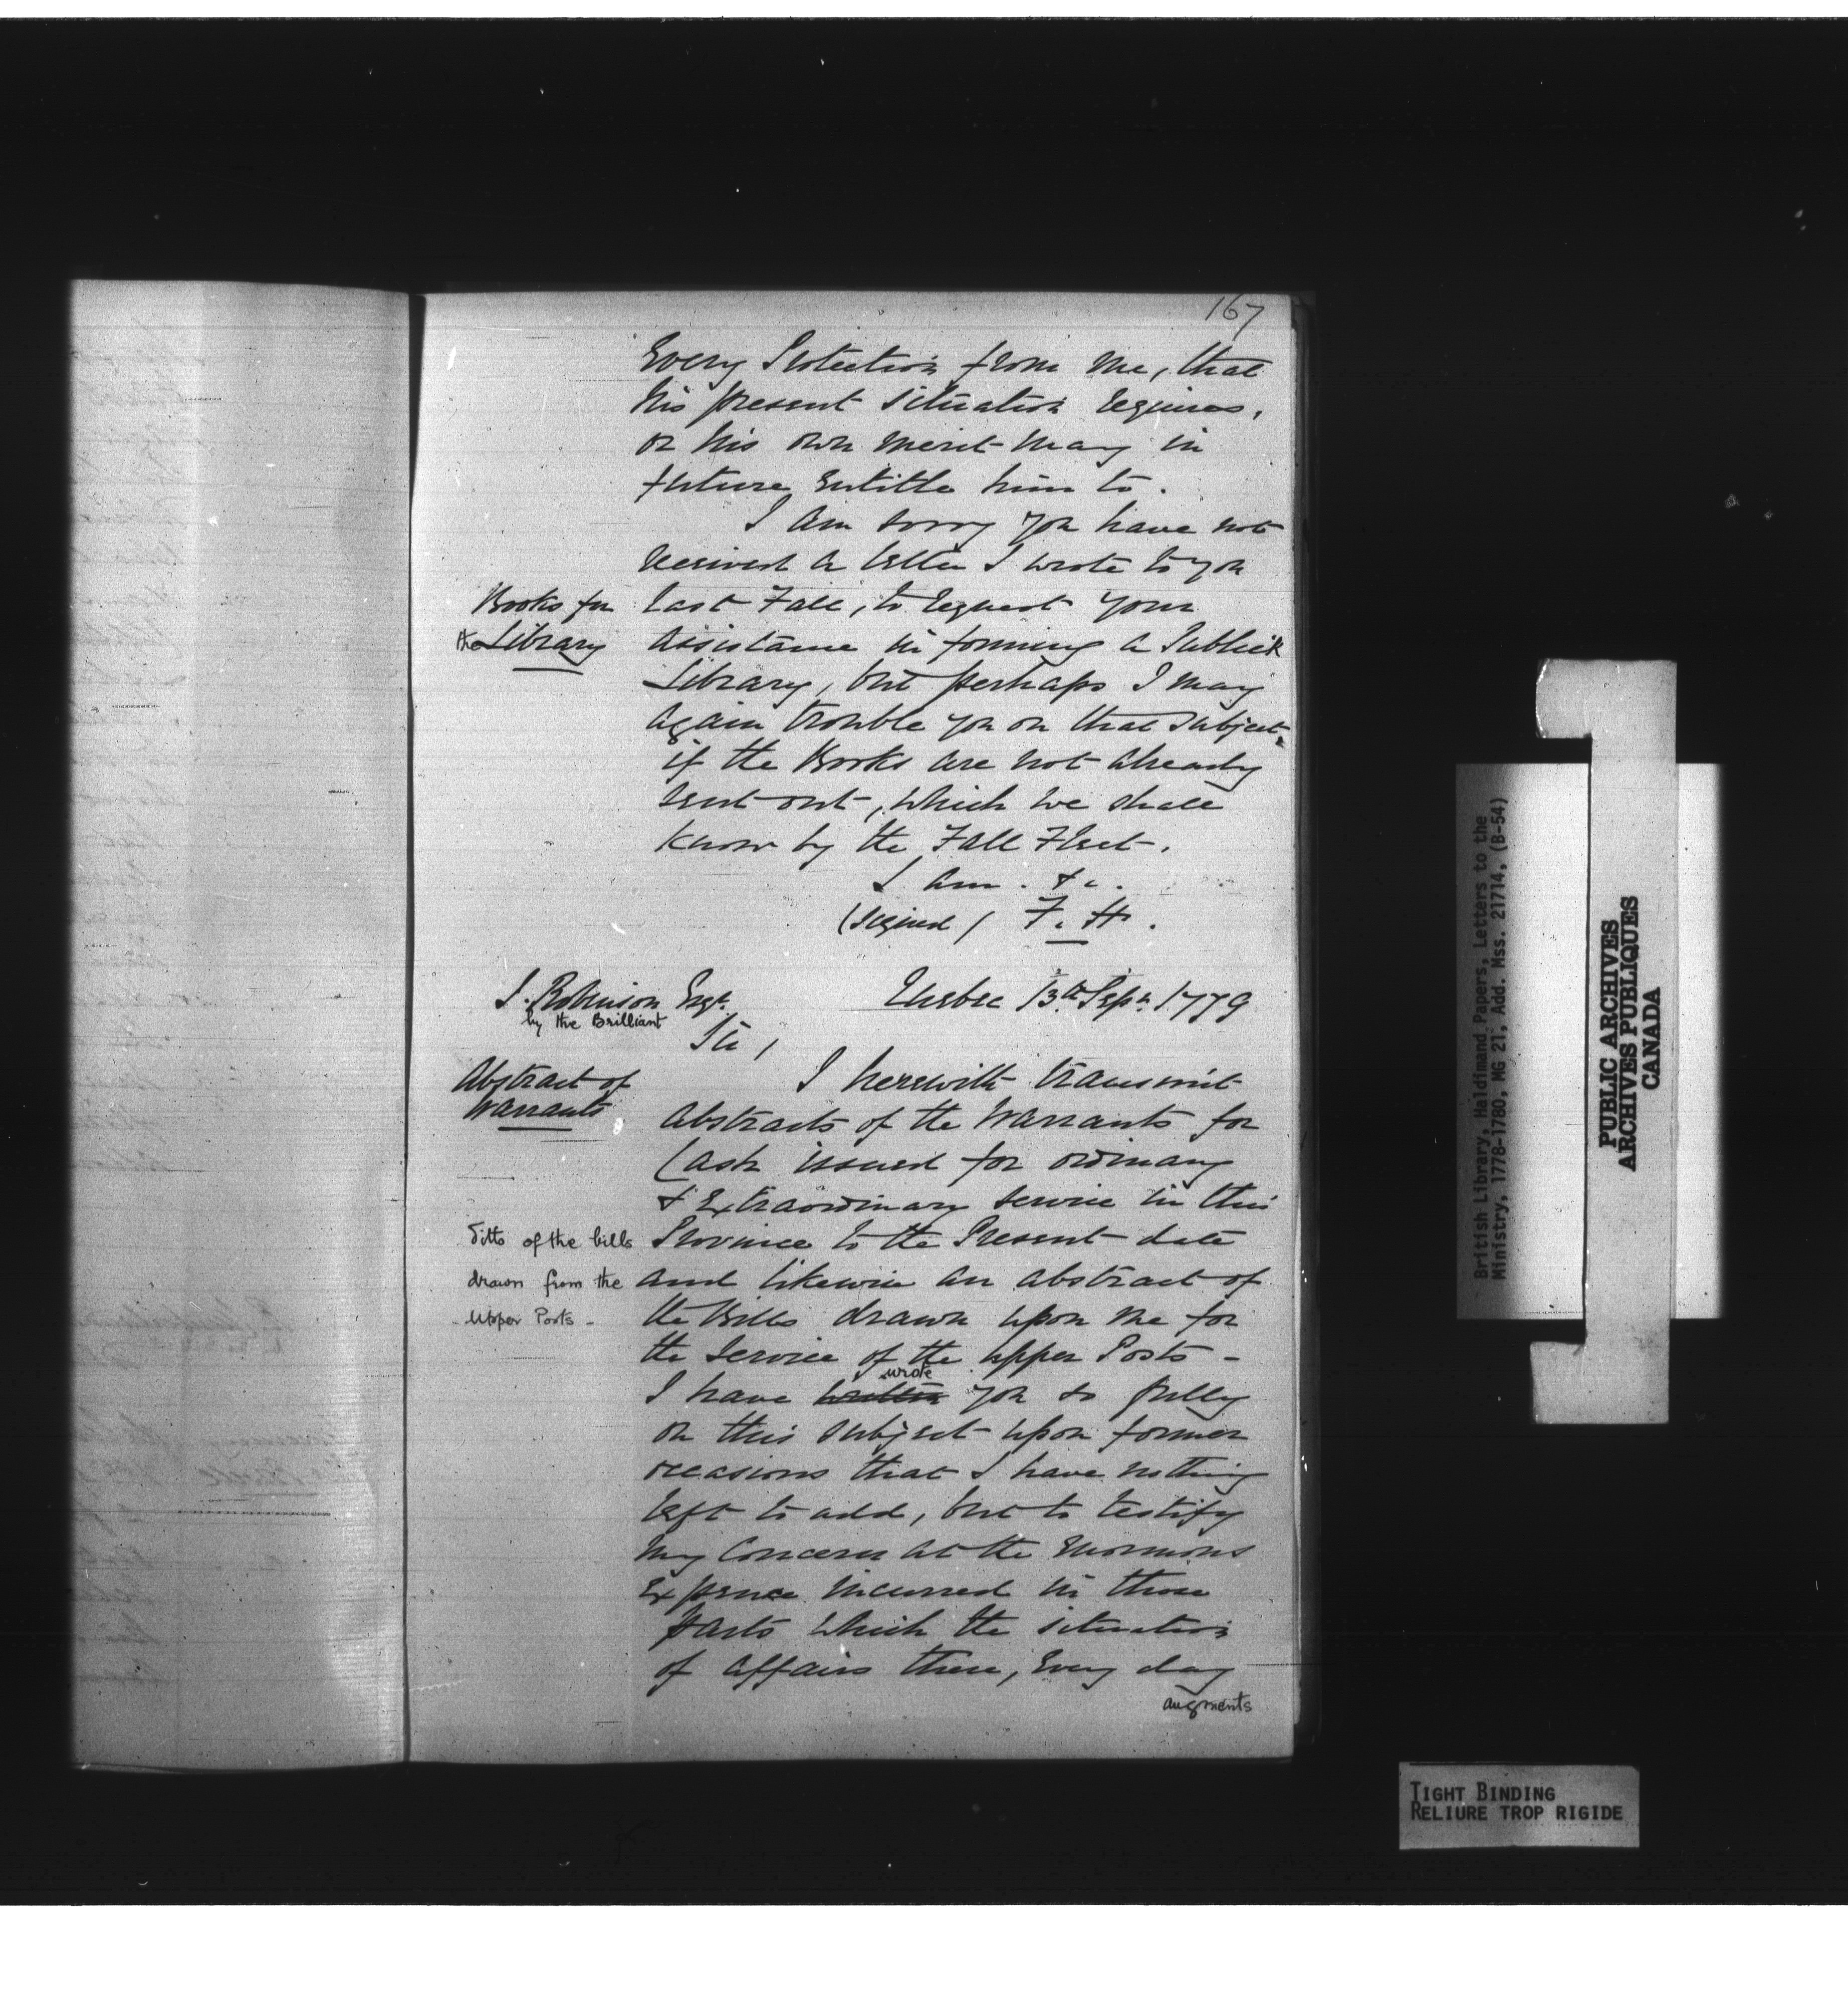 167
Every Protection from me, that
his present situation requires,
or his own merit may in
future Entitle him to.
I am sorry you have not
received a letter I wrote to you
Books for
the Library
last Fall, to request your
assistance in forming a Publick
Library, but perhaps I may
again trouble you on that subject,
if the Books are not already
sent out, which we shall
know by the Fall Fleet.
I am. &c.
(signed) F. H.
J. Robinson Esqr.
by the Brilliant
Quebec 13th Sepr. 1779
Sir,
Abstract of
Warrants
I herewith transmit
abstracts of the Warrants for
Cash issued for ordinary
& Extraordinary service in this
Ditto of the bills
drawn from the
Upper Posts -
Province to the Present date
and likewise an abstract of
the Bills drawn upon me for
the Service of the upper Posts -
I have written wrote you so fully
on this subject upon former
occasions that I have nothing
left to add, but to testify
my Concern at the Enormous
Expence incurred in those
parts which the situation
of affairs there, Every day
augments
British Library, Haldimand Papers, Letters to the
Ministry, 1778-1780, MG 21, Add. Mss. 21714, (B-54)
PUBLIC ARCHIVES
ARCHIVES PUBLIQUES
CANADA
TIGHT BINDING
RELIURE TROP RIGIDE